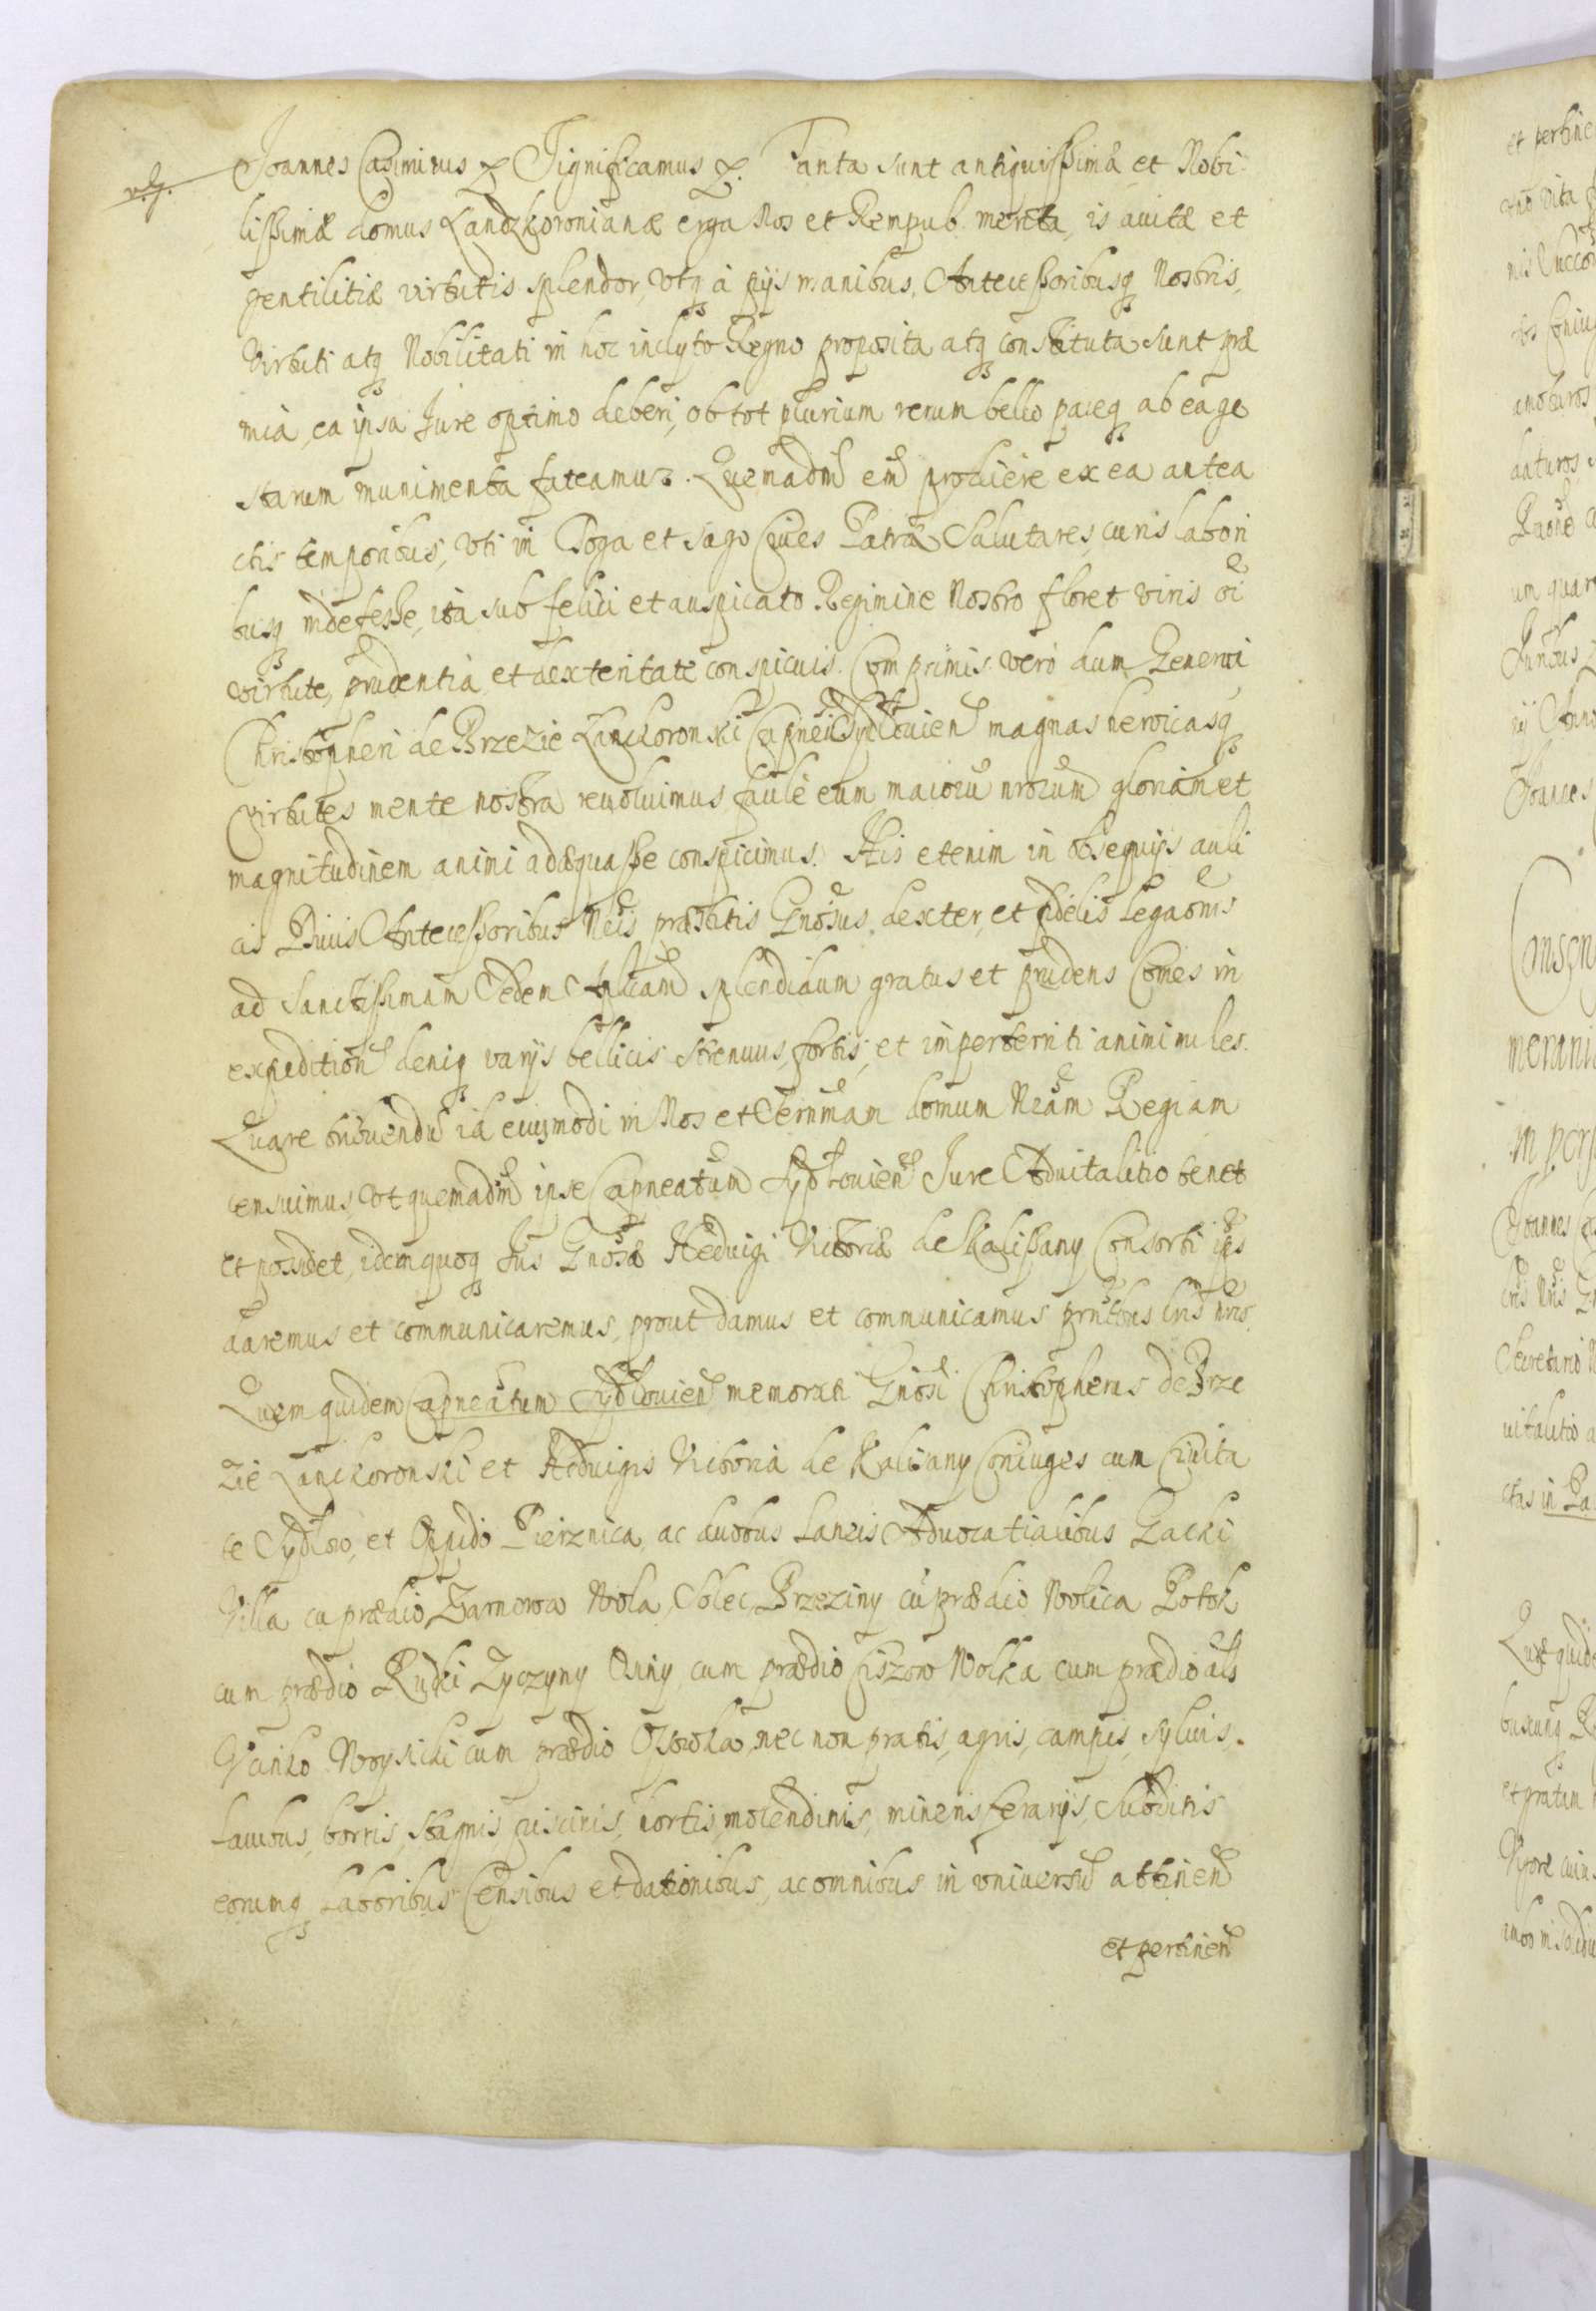 Joannes Casimirus etc Significamus etc. Tanta sunt antiquissimæ et Nobi
lissimæ domus Landzkoronianæ erga Nos et Rempub. merita, is auitæ et
gentilitiæ virtutis splendor, vtq á pijs manibus, Antecessoribusq Nostris,
Virtuti atq Nobilitati in hoc inclyto Regno proposita atq constituta sunt præ
mia, ea ipsa Jure optimo deberi, ob tot plurium rerum bello paceq ab ea ge
starum munimenta fateamur. Quemadm em prodiere ex ea antea
ctis temporibus, vti in Toga et sago Ciues Patriæ Salutares, curis labori
busq indefesse, ita sub felici et auspicato Regimine Nostro floret viris oi
virtute, prudentia et dexteritate conspicuis. Comprimis verò dum Generosi
Christopheri de Brzezie Lanckoronski Capnei Sydlouien magnas heroicasq
virtutes mente nostra reuoluimus, facilè eum maiorū nrorum gloriam et
magnitudinem animi adæquasse conspicimus. Is etenim in obsequijs auli
cis Diuis Antecessoribus Nris præstitis Gnosus, dexter, et fidelis Legaonis
ad Sanctissimam Sedem Aplicam splendidum gratus et prudens Comes in
expedition deniq varijs bellicis strenuus, fortis, et imperterriti animi miles.
Quare tribuendū id eiusmodi in Nos et Sernmam domum Nram Regiam
censuimus, vt quemadm ipse Capneatum Sydlouien Jure Aduitalitio tenet
et possidet, idem quoq Jus Gnosæ Heduigi Victoriæ de Kalissany Consorti ips
daremus et communicaremus, prout damus et communicamus prntbus lris nris.
Quem quidem Capneatum Sydlouien memorati Gnosi Christopherus de Brze
zie Lanckoronski et Heduigis Victoria de Kalisany Coniuges cum Ciuita
te Sydlow, et Oppido Pierznica, ac duobus Laneis Aduocatialibus Gacki
Villa cu prædio, Zarnowa Wola, Solec, Brzeziny cū prædio Wolica Potok
cum prædio Rudki Zyczyny Osiny cum prædio Ciszow Wolka cum prædio als
Wanko Woysicki cum prædio Ossowka, nec non pratis, agris, campis, syluis,
Lacubus, borris, stagnis, piscinis, hortis, molendinis, mineris ferarijs, Subditis
eorumq Laboribus Censibus et dationibus, ac omnibus in vniuersū attinen
et pertinen